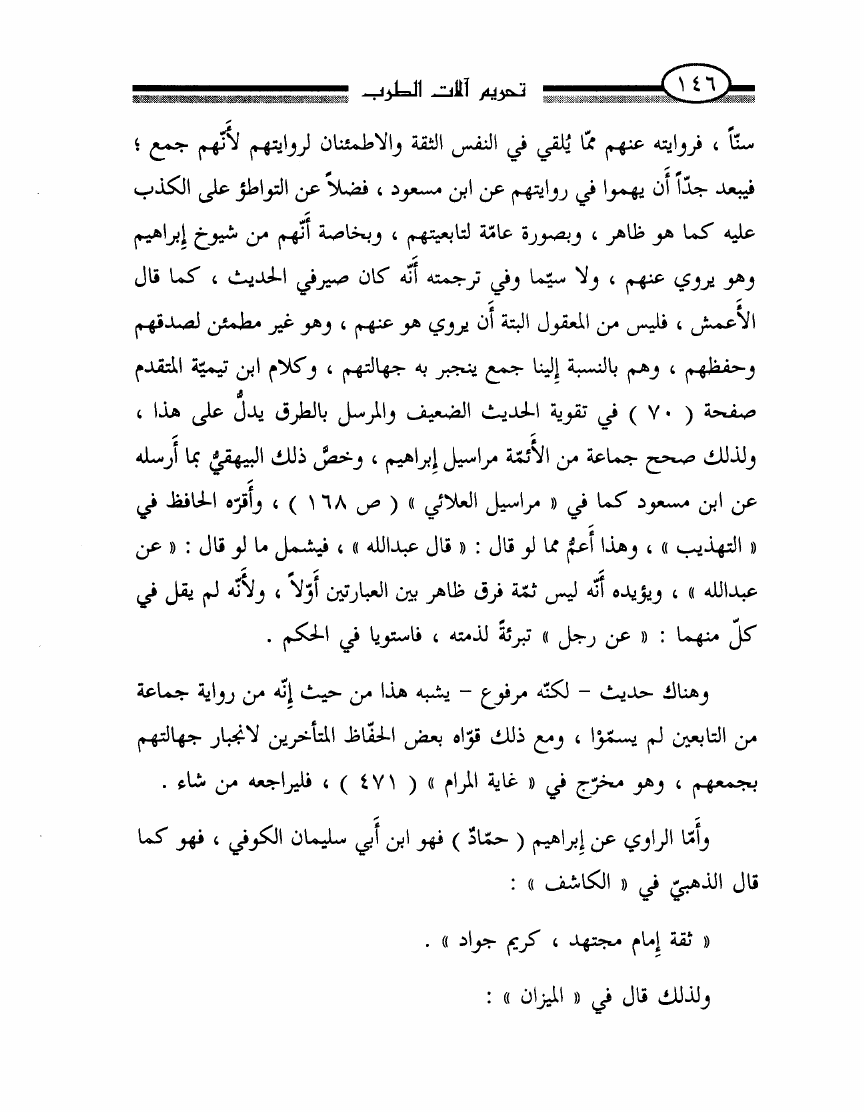 ١٤٦
تحريم آلات الطرب
سنّاً ، فروايته عنهم ممّا يُلقي في النفس الثقة والاطمئنان لروايتهم لأَنّهم جمع ؛
فيبعد جدّاً أَن يهموا في روايتهم عن ابن مسعود ، فضلاً عن التواطؤ على الكذب
عليه كما هو ظاهر ، وبصورة عامّة لتابعيتهم ، وبخاصة أَنّهم من شيوخ إبراهيم
وهو يروي عنهم ، ولا سيّما وفي ترجمته أَنّه كان صيرفي الحديث ، كما قال
الأَعمش ، فليس من المعقول البتة أَن يروي هو عنهم ، وهو غير مطمئن لصدقهم
وحفظهم ، وهم بالنسبة إلينا جمع ينجبر به جهالتهم ، وكلام ابن تيميّة المتقدم
صفحة ( ٧٠ ) في تقوية الحديث الضعيف والمرسل بالطرق يدلُّ على هذا ،
ولذلك صحح جماعة من الأَئمّة مراسيل إبراهيم ، وخصَّ ذلك البيهقيُّ بما أَرسله
عن ابن مسعود كما في « مراسيل العلائي » ( ص ١٦٨ ) ، وأَقرّه الحافظ في
« التهذيب » ، وهذا أَعمُّ مما لو قال : « قال عبدالله » ، فيشمل ما لو قال : « عن
عبدالله » ، ويؤيده أَنّه ليس ثمّة فرق ظاهر بين العبارتين أَوّلاً ، ولأَنّه لم يقل في
كلّ منهما : « عن رجل » تبرئةً لذمته ، فاستويا في الحكم .
وهناك حديث – لكنّه مرفوع – يشبه هذا من حيث إنّه من رواية جماعة
من التابعين لم يسمّؤا ، ومع ذلك قوّاه بعض الحفّاظ المتأخرين لانجبار جهالتهم
بجمعهم ، وهو مخرّج في « غاية المرام » ( ٤٧١ ) ، فليراجعه من شاء .
وأَمّا الراوي عن إبراهيم ( حمّادٌ ) فهو ابن أَبي سليمان الكوفي ، فهو كما
قال الذهبيّ في « الكاشف » :
« ثقة إمام مجتهد ، كريم جواد » .
ولذلك قال في « الميزان » :